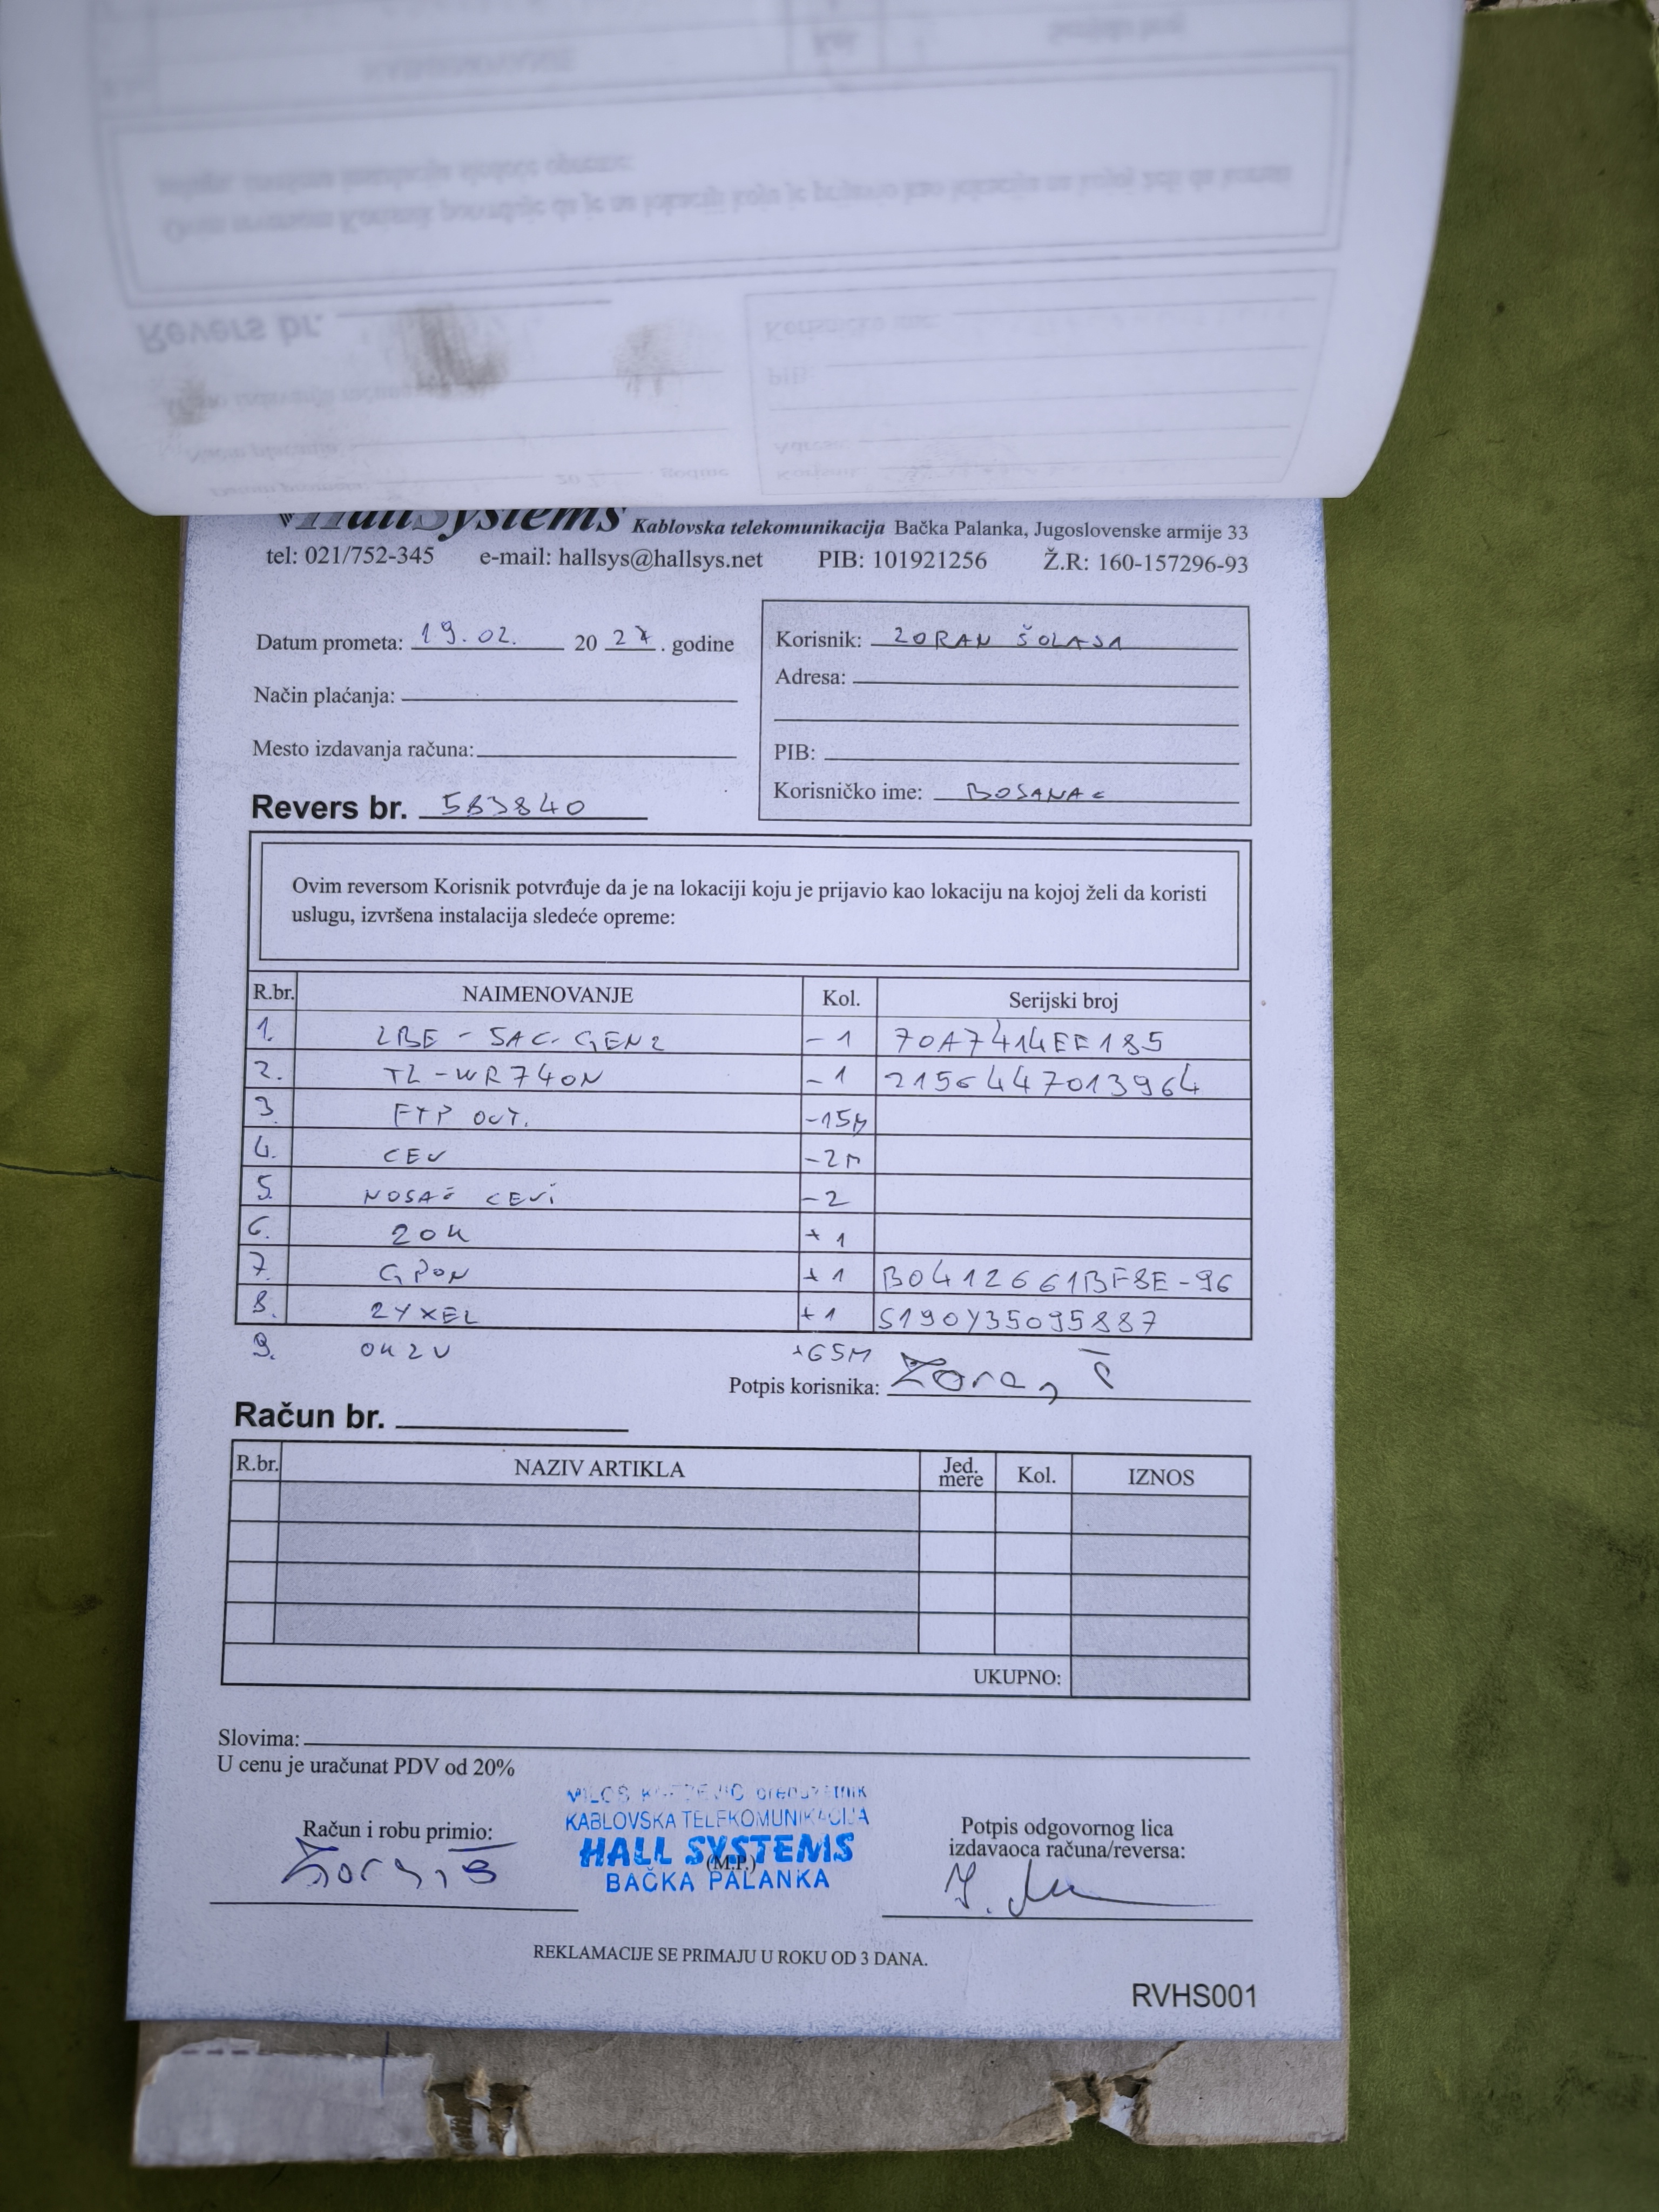 HallSystems Kablovska telekomunikacija Bačka Palanka, Jugoslovenske armije 33
tel: 021/752-345 e-mail: hallsys@hallsys.net PIB: 101921256 Ž.R: 160-157296-93
Datum prometa: 19.02. 20 24. godine
Način plaćanja:
Mesto izdavanja računa:
Revers br. 583840
Korisnik: ZORAN ŠOLAJA
Adresa:
PIB:
Korisničko ime: BOSANAC
Ovim reversom Korisnik potvrđuje da je na lokaciji koju je prijavio kao lokaciju na kojoj želi da koristi
uslugu, izvršena instalacija sledeće opreme:
R.br. NAIMENOVANJE Kol. Serijski broj
1. LBE - 5AC-GEN2 -1 70A7414EE185
2. TL-WR740N -1 2156447013964
3. FTP OUT. -15M
4. CEV -2M
5. NOSAČ CEVI -2
6. ZOK +1
7. GPON +1 B0412661BF8E-96
8. ZYXEL +1 S190Y35095887
9. OK2V +65M
Potpis korisnika: Zoran Š
Račun br.
R.br. NAZIV ARTIKLA Jed. mere Kol. IZNOS
UKUPNO:
Slovima:
U cenu je uračunat PDV od 20%
Račun i robu primio:
KABLOVSKA TELEKOMUNIKACIJA
HALL SYSTEMS
(M.P.)
BAČKA PALANKA
Potpis odgovornog lica
izdavaoca računa/reversa:
REKLAMACIJE SE PRIMAJU U ROKU OD 3 DANA.
RVHS001